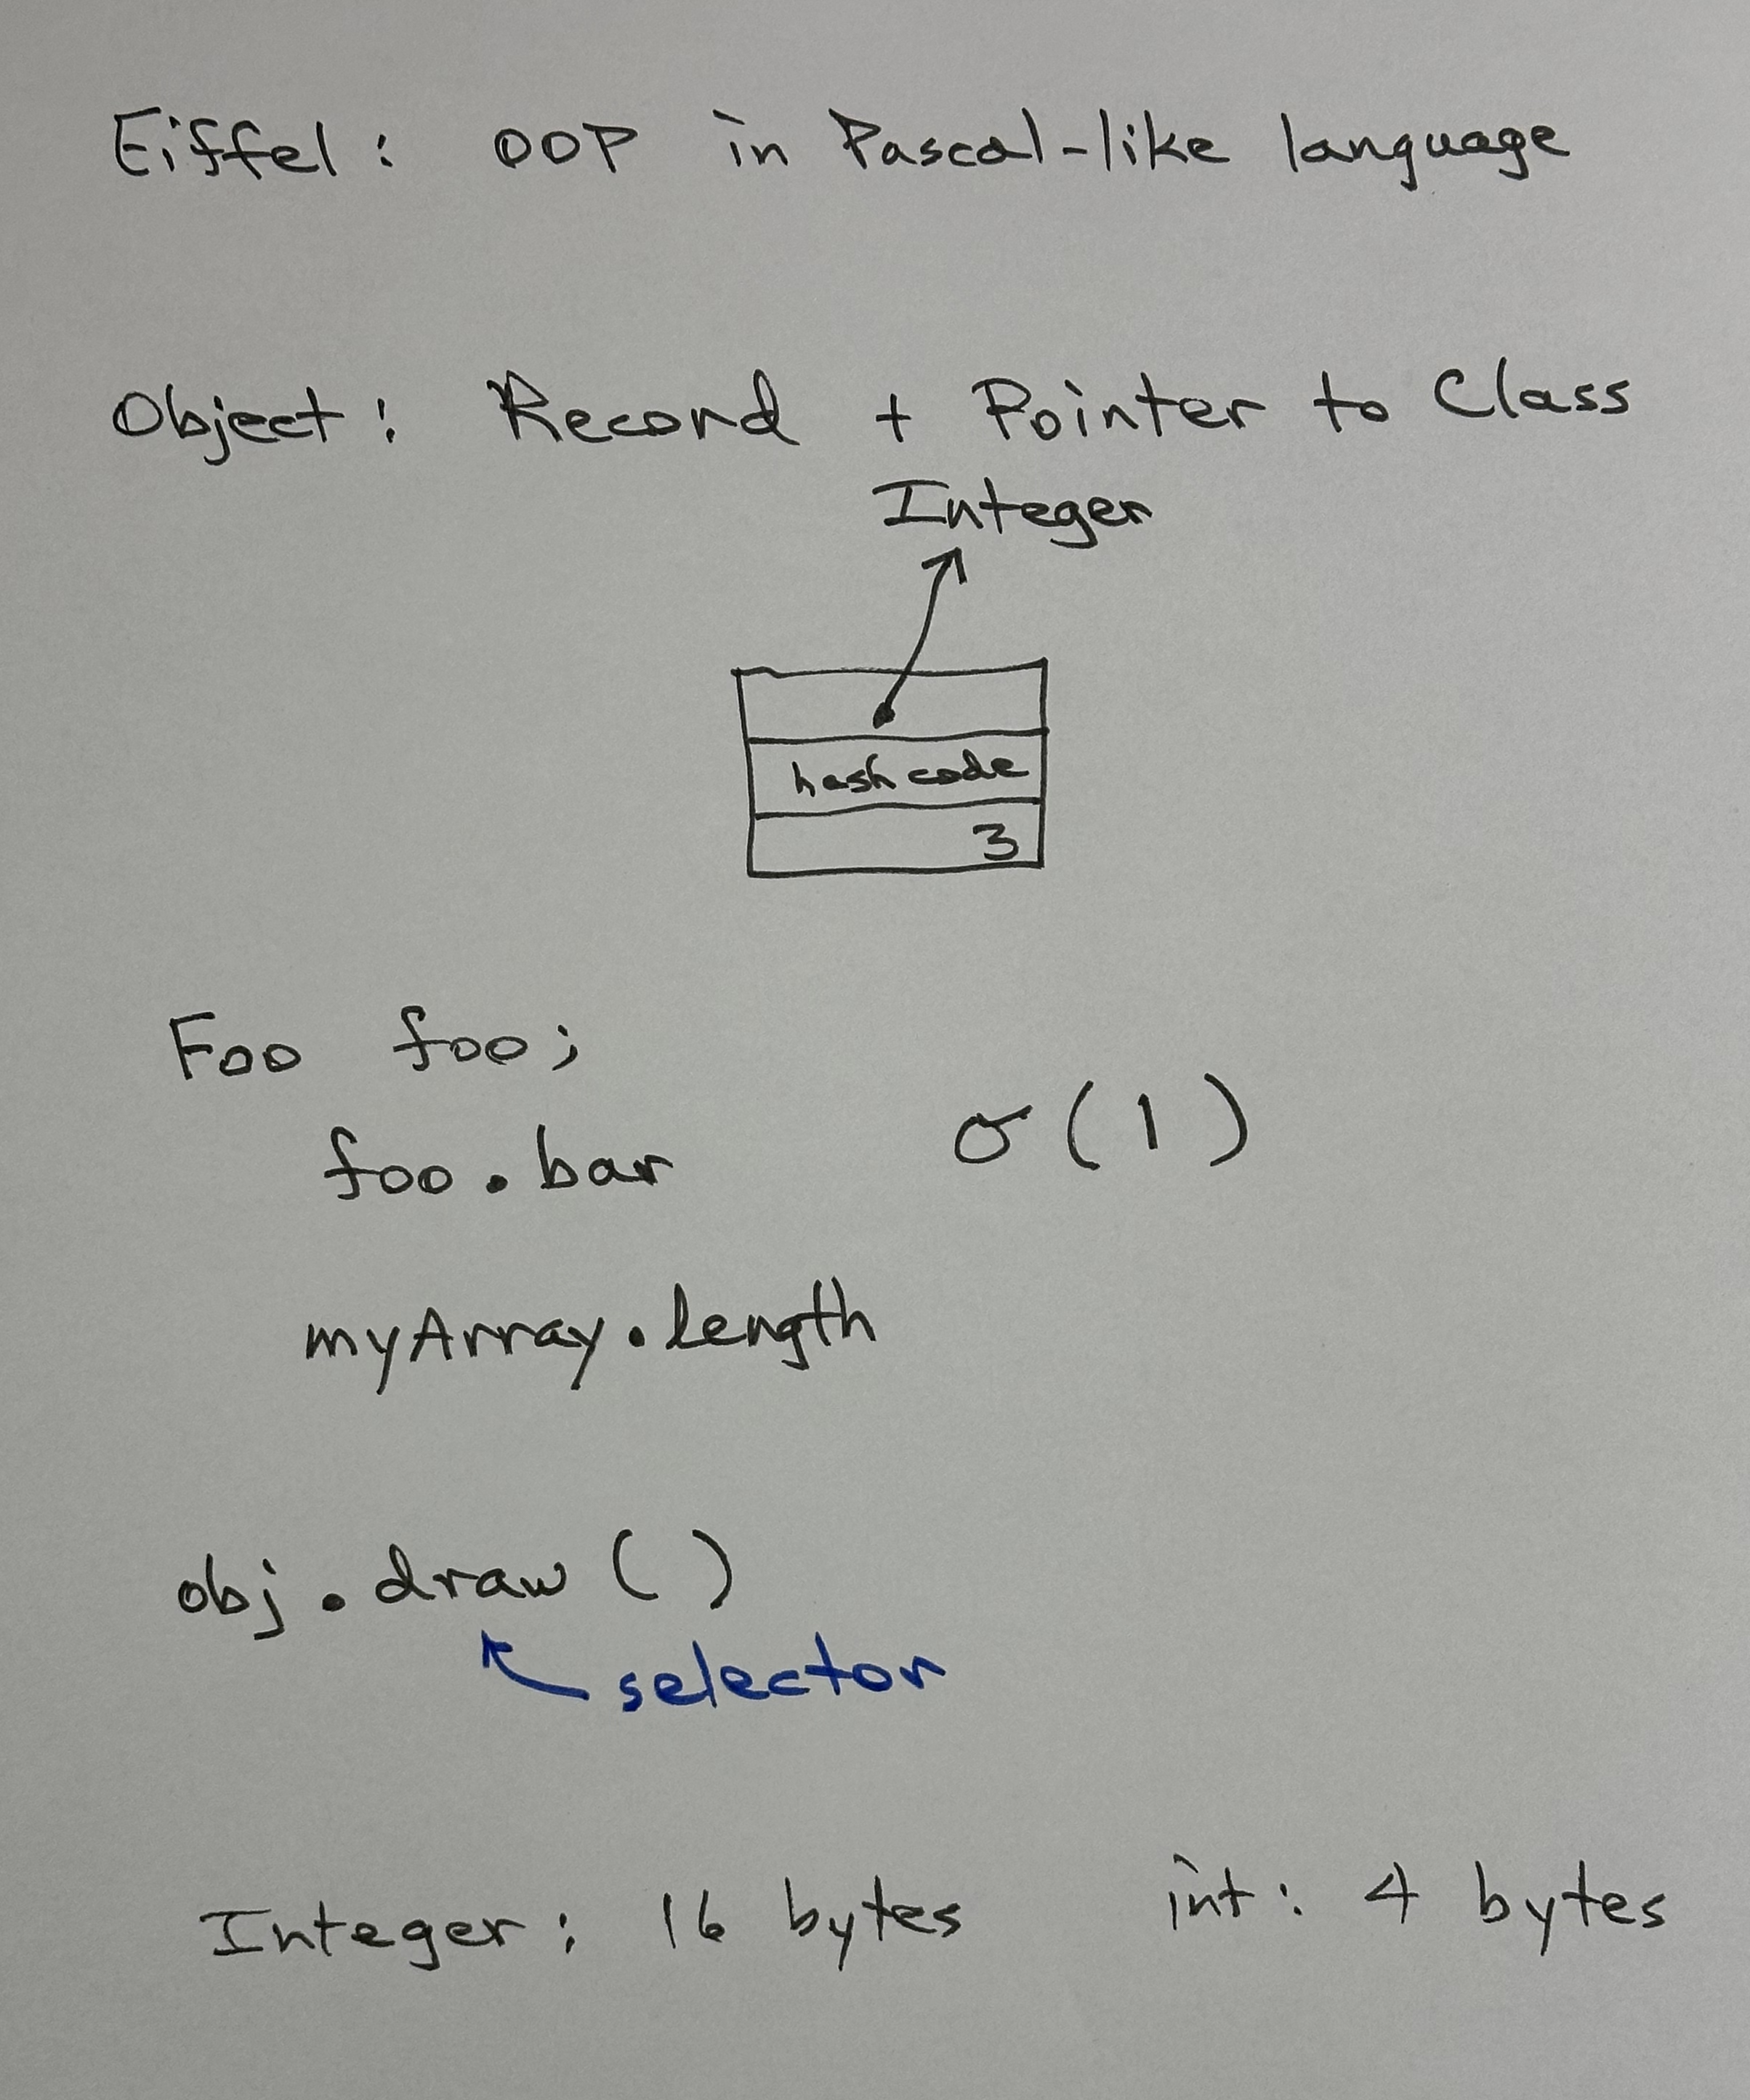 Eiffel: OOP in Pascal-like language
Object: Record + Pointer to Class
Integer
hash code
3
Foo foo;
σ(1)
foo.bar
myArray.length
obj.draw()
selector
Integer: 16 bytes int: 4 bytes